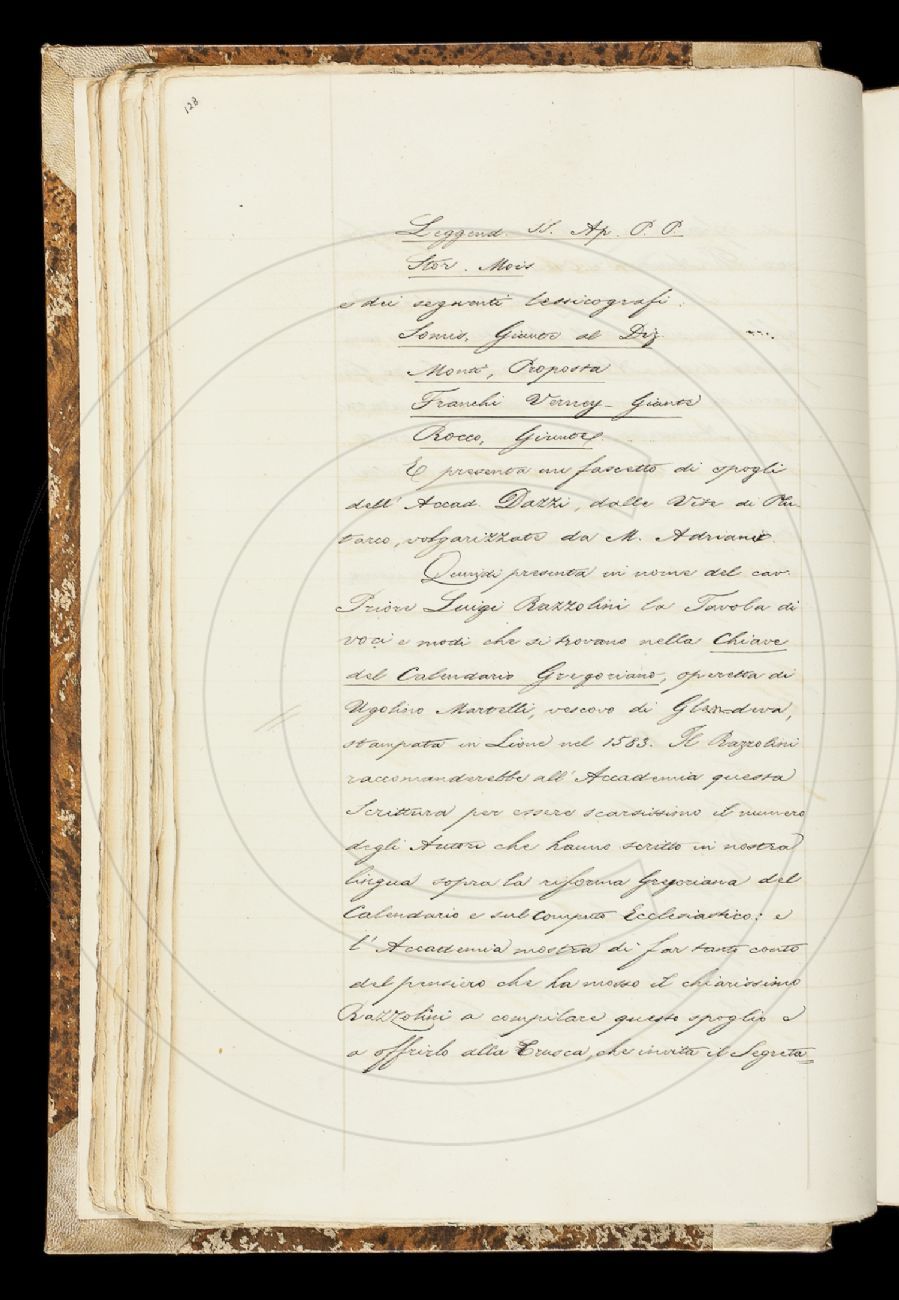 128
Leggend. SS. Ap. P. P.
Stor. Mois
e dei seguenti lessicografi:
Somis, Giunte al Diz.
Mont', Proposta
Franchi Verney - Giunte
Rocco, Giunte.
E presenta un fascetto di spogli
dell' Accad. Dazzi, dalle Vite di Plu
tarco, volgarizzate da M. Adriani.
Quindi presenta in nome del cav.
Priore Luigi Razzolini la Tavola di
voci e modi che si trovano nella Chiave
del Calendario Gregoriano, operetta di
Ugolino Martelli, vescovo di Glandeva,
stampata in Lione nel 1583. Il Razzolini
raccomanderebbe all' Accademia questa
Scrittura per essere scarsissimo il numero
degli Autori che hanno scritto in nostra
lingua sopra la riforma Gregoriana del
Calendario e sul Computo Ecclesiastico: e
l' Accademia mostra di far tanto conto
del pensiero che ha mosso il chiarissimo
Razzolini a compilare questo spoglio e
a offrirlo alla Crusca, che invita il Segreta=